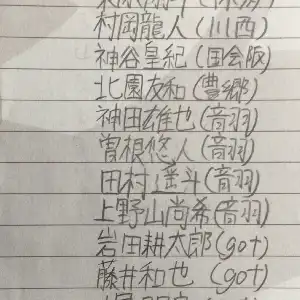 村岡龍人(川西)
神谷皇紀(国会阪)
北園友和(豊郷)
神田雄也(音羽)
曽根悠人(音羽)
田村遥斗(音羽)
上野山尚希(音羽)
岩田耕太郎(got)
藤井和也(got)